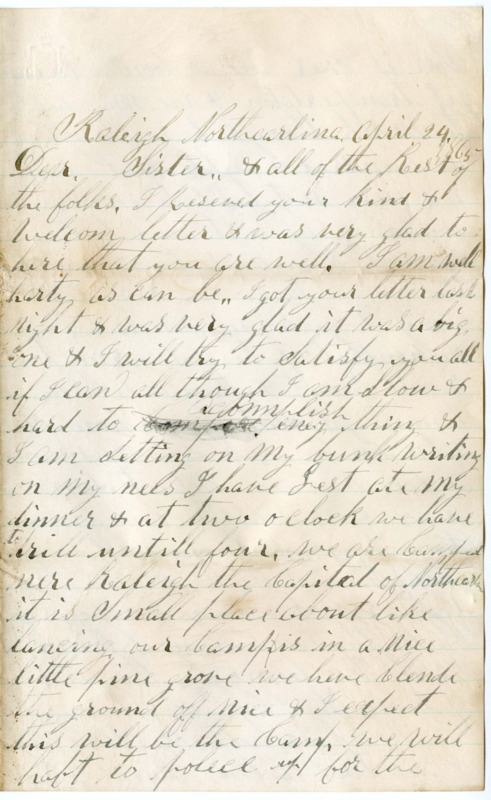 Raleigh Northcarlina April 24, 1865
Dear. Sister,, & all of the Rest of
the folks. I Reseved your kind &
welcom letter & was very glad to
here that you are well. I am well
harty as can be,, I got your letter last
night & was very glad it was a big
one & I will try to Satisfy you all
if I can all though I am slow &
hard to acomplish eney thing &
I am Setting on My bunk writing
on my nees I have Jest ate my
dinner & at two o clock we have
drill untill four. we are Camped
nere Raleigh the Capital of Northcarlin
it is Small place about like
Lancing our Camp is in a nice
little pine grove we have Clende
the ground off nice & I expect
this will be the Camp we will
haft to polece up for the